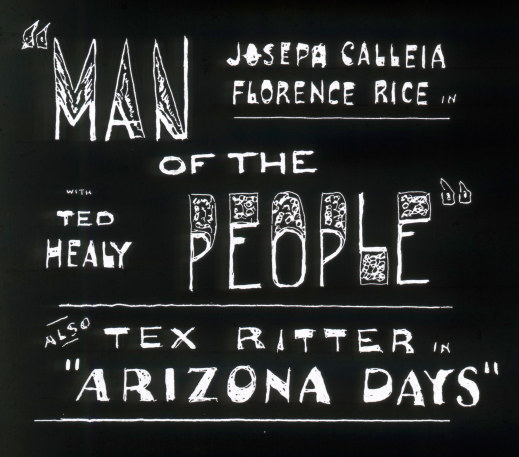 JOSEPH CALLEIA
FLORENCE RICE IN
"MAN
OF THE
PEOPLE"
WITH
TED
HEALY
ALSO TEX RITTER IN
"ARIZONA DAYS"